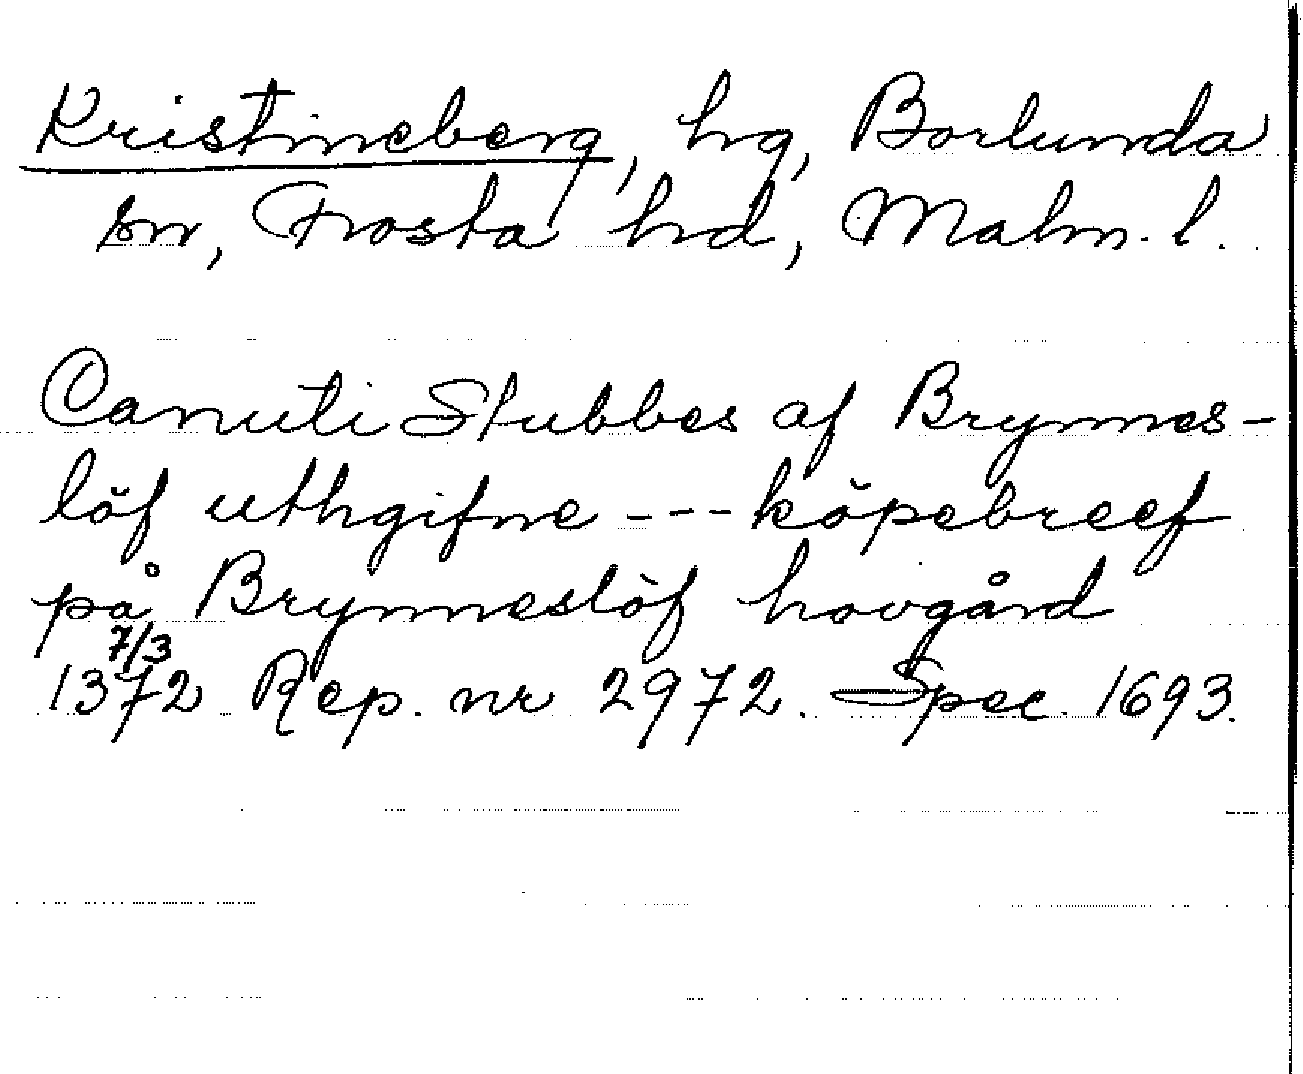 Kristineberg, hg, Borlunda
sn, Frosta hd, Malm. l.
Canuti Stubbes af Brynnes-
löf uthgifne --- köpebreef
på Brynneslöf hovgård
7/3
1372 Rep. nr 2972. Spec. 1693.